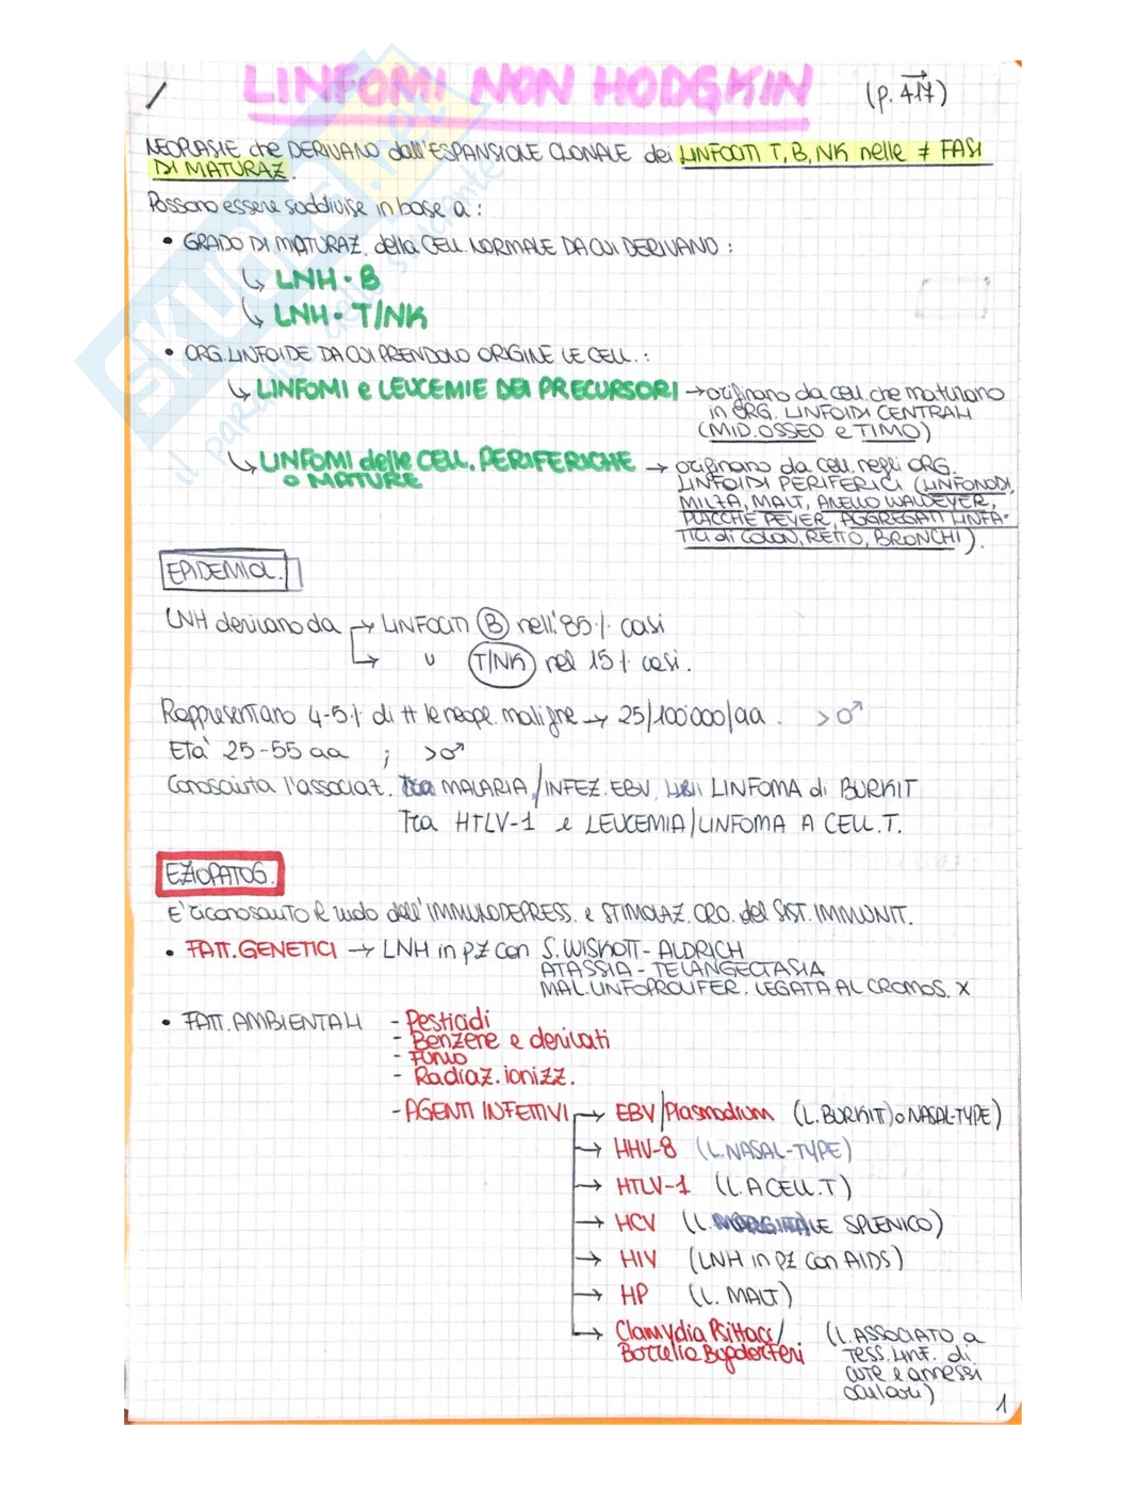 LINFOMI NON HODGKIN (p. 417)
NEOPLASIE che DERIVANO dall'ESPANSIONE CLONALE dei LINFOCITI T, B, NK nelle ≠ FASI
DI MATURAZ.
Possono essere suddivise in base a :
• GRADO DI MATURAZ. della CELL. NORMALE DA CUI DERIVANO :
↳ LNH - B
↳ LNH - T/NK
• ORG. LINFOIDE DA CUI PRENDONO ORIGINE LE CELL. :
↳ LINFOMI e LEUCEMIE DEI PRECURSORI → originano da cell. che maturano
in ORG. LINFOIDI CENTRALI
(MID. OSSEO e TIMO)
↳ LINFOMI delle CELL. PERIFERICHE → originano da cell. negli ORG.
o MATURE
LINFOIDI PERIFERICI (LINFONODI,
MILZA, MALT, ANELLO WALDEYER,
PLACCHE PEYER, AGGREGATI LINFA-
TICI di COLON, RETTO, BRONCHI).
EPIDEMIOL.
LNH derivano da → LINFOCITI B nell'85% casi
→ " T/NK nel 15% casi.
Rappresentano 4-5% di tt le neopl. maligne → 25/100'000/aa . >♂
Età 25-55 aa ; >♂
Conosciuta l'associaz. tra MALARIA/INFEZ. EBV LINFOMA di BURKIT
Tra HTLV-1 e LEUCEMIA/LINFOMA A CELL. T.
EZIOPATOG.
E' riconosciuto il ruolo dell'IMMUNODEPRESS. e STIMOLAZ. CRO. del SIST. IMMUNIT.
• FATT. GENETICI → LNH in pz con S. WISKOTT-ALDRICH
ATASSIA - TELANGECTASIA
MAL. LINFOPROLIFER. LEGATA AL CROMOS. X
• FATT. AMBIENTALI - Pesticidi
- Benzene e derivati
- Fumo
- Radiaz. ionizz.
- AGENTI INFETTIVI → EBV/Plasmodium (L. BURKIT) o NASAL-TYPE)
→ HHV-8 (L. NASAL-TYPE)
→ HTLV-1 (L. A CELL. T)
→ HCV (L. MARGINALE SPLENICO)
→ HIV (LNH in pz con AIDS)
→ HP (L. MALT)
→ Clamydia Psittaci/ (L. ASSOCIATO a
Borrelia Bugdorferi TESS. LINF. di
cute e annessi
oculari)
1
SKUOLA.net
il paradiso dello studente